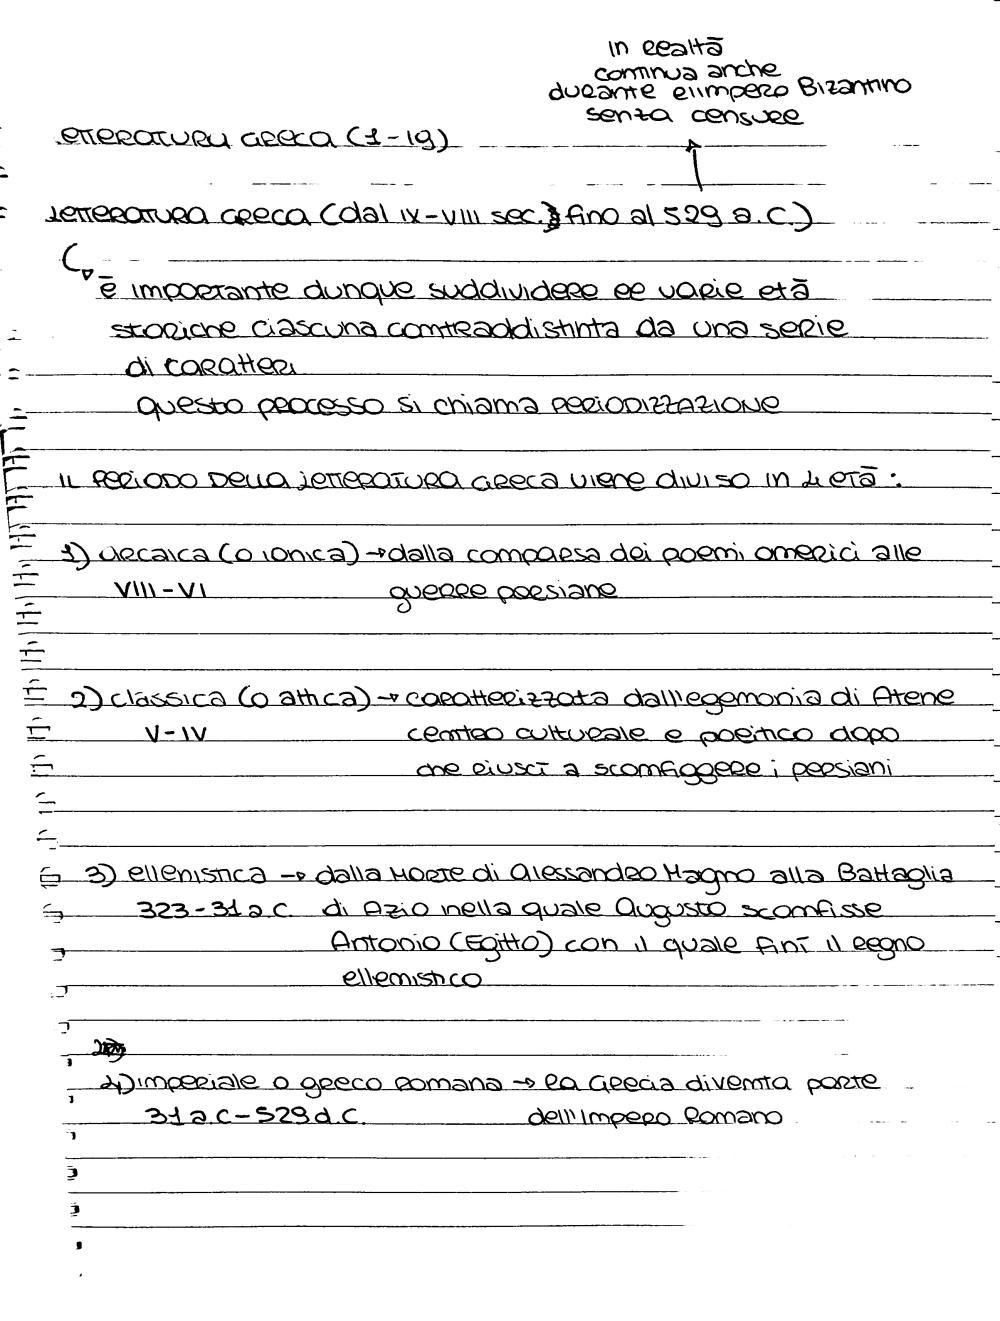 In realtà
continua anche
durante l'impero Bizantino
senza censure
LETTERATURA GRECA (1-19)
LETTERATURA GRECA (dal IX-VIII sec. fino al 529 a.C.)
è importante dunque suddividere le varie età
storiche ciascuna contraddistinta da una serie
di caratteri
questo processo si chiama PERIODIZZAZIONE
IL PERIODO DELLA LETTERATURA GRECA viene diviso in 4 ETÀ:
1) arcaica (o ionica) → dalla comparsa dei poemi omerici alle
VIII-VI guerre persiane
2) classica (o attica) → caratterizzata dall'egemonia di Atene
V-IV centro culturale e politico dopo
che riuscì a sconfiggere i persiani
3) ellenistica → dalla Morte di Alessandro Magno alla Battaglia
323-31 a.C. di Azio nella quale Augusto sconfisse
Antonio (Egitto) con il quale finì il regno
ellenistico
4) imperiale o greco romana → la Grecia diventa parte
31 a.C-529 d.C. dell'Impero Romano